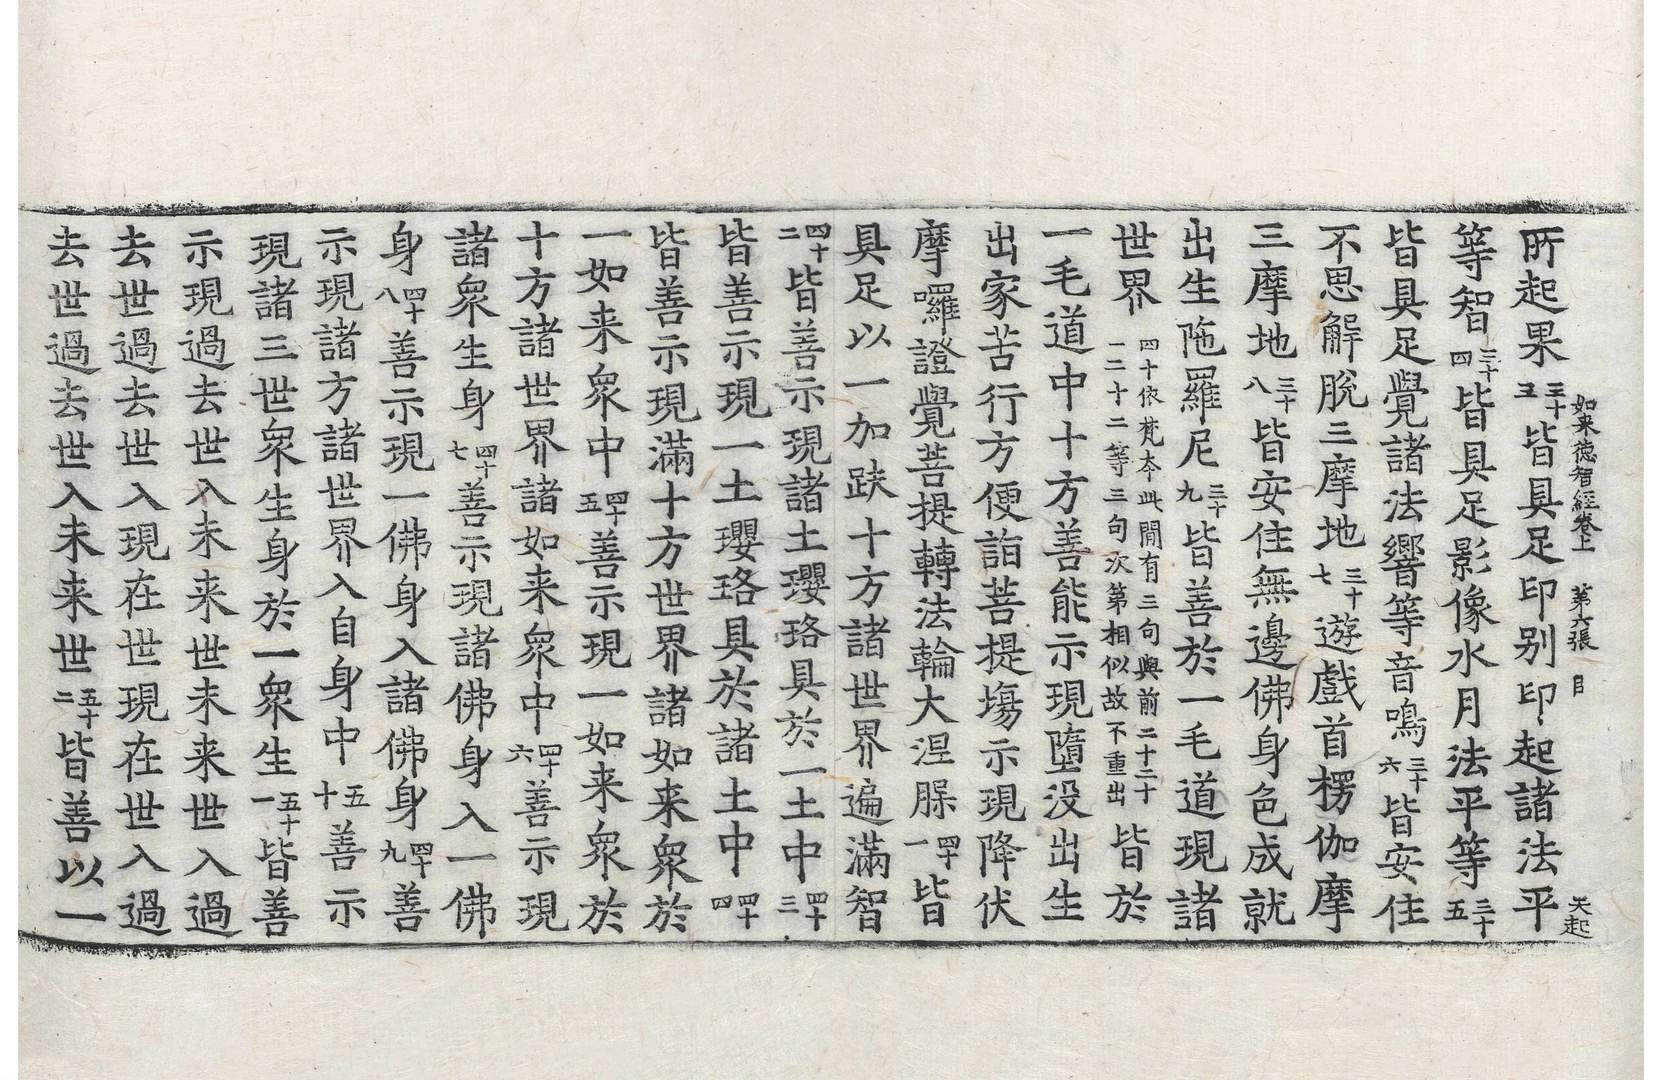 如来德智經卷上 第六張 目 天起
所起果三十三皆具足印别印起諸法平
等智三十四皆具足影像水月法平等三十五
皆具足覺諸法響等音鳴三十六皆安住
不思解脫三摩地三十七遊戲首楞伽摩
三摩地三十八皆安住無邊佛身色成就
出生陁羅尼三十九皆善於一毛道現諸
世界四十依梵本此間有三句與前二十二十一二十二等三句次第相似故不重出皆於
一毛道中十方善能示現墮没出生
出家苦行方便詣菩提塲示現降伏
摩囉證覺菩提轉法輪大涅䏶四十一皆
具足以一加趺十方諸世界遍滿智
四十二皆善示現諸土瓔珞具於一土中四十三
皆善示現一土瓔珞具於諸土中四十四
皆善示現滿十方世界諸如来衆於
一如来衆中四十五善示現一如来衆於
十方諸世界諸如来衆中四十六善示現
諸衆生身四十七善示現諸佛身入一佛
身四十八善示現一佛身入諸佛身四十九善
示現諸方諸世界入自身中五十善示
現諸三世衆生身於一衆生五十一皆善
示現過去世入未来世未来世入過
去世過去世入現在世現在世入過
去世過去世入未来世五十二皆善以一